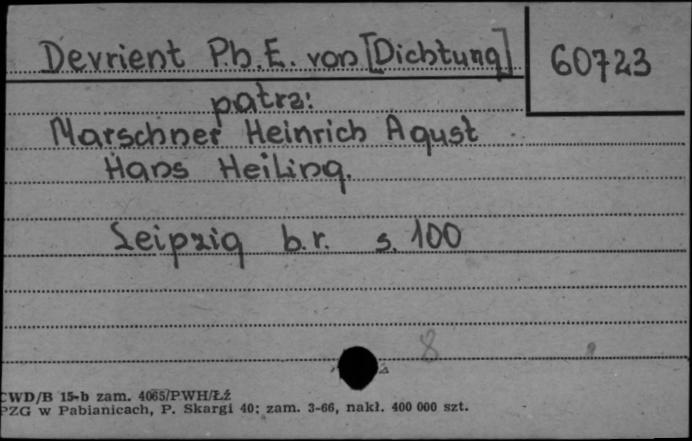 Devrient Ph. E. von [Dichtung]
60723
patrz:
Marschner Heinrich Agust
Hans Heiling.
Leipzig b.r. s. 100
8
CWD/B 15-b zam. 4065/PWH/Łź
PZG w Pabianicach, P. Skargi 40; zam. 3-66, nakł. 400 000 szt.